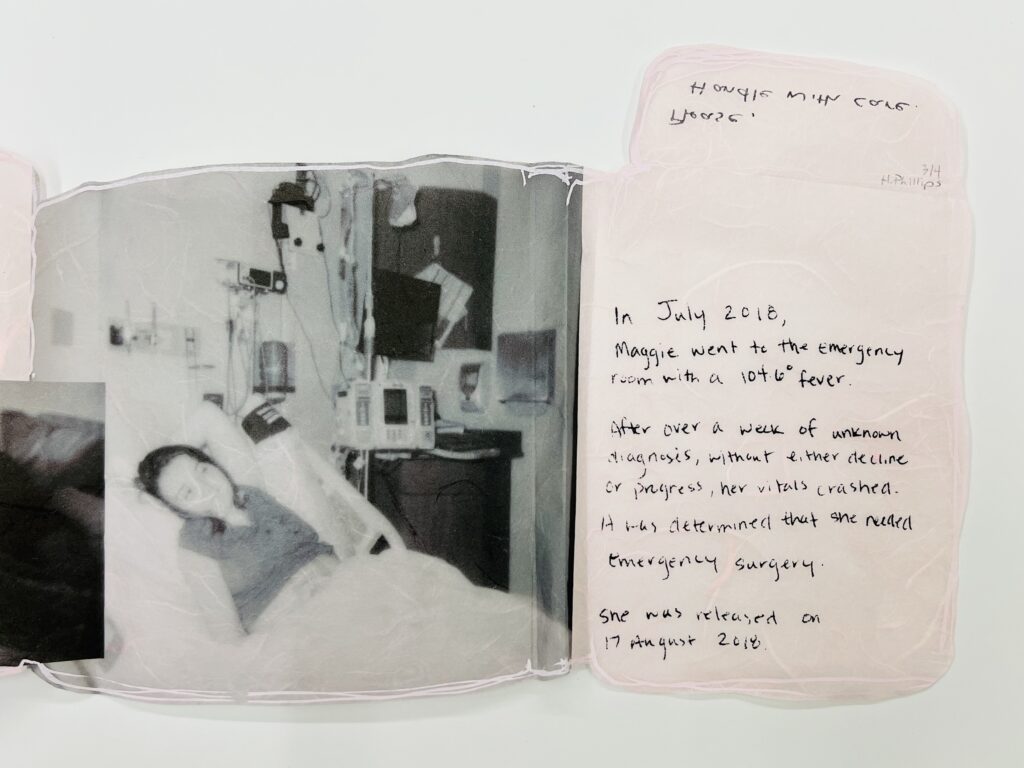 Handle with care.
Please.
3/4
H. Phillips
In July 2018,
Maggie went to the Emergency
room with a 104.6° fever.
After over a week of unknown
diagnosis, without either decline
or progress, her vitals crashed.
It was determined that she needed
Emergency surgery.
She was released on
17 August 2018.